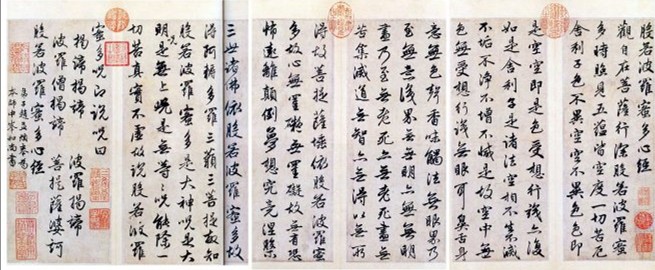 般若波羅蜜多心經
觀自在菩薩行深般若波羅蜜
多時照見五蘊皆空度一切苦厄
舍利子色不異空空不異色色即
是空空即是色受想行識亦復
如是舍利子是諸法空相不生不滅
不垢不淨不增不減是故空中無
色無受想行識無眼耳鼻舌身
意無色聲香味觸法無眼界乃
至無意識界無無明亦無無明
盡乃至無老死亦無老死盡無
苦集滅道無智亦無得以無所
得故菩提薩埵依般若波羅蜜
多故心無罣礙無罣礙故無有恐
怖遠離顛倒夢想究竟涅槃
三世諸佛依般若波羅蜜多故
得阿耨多羅三藐三菩提故知
般若波羅蜜多是大神咒是大
明咒是無上咒是無等〻咒能除一
切苦真實不虛故說般若波羅
蜜多咒即說咒曰
揭諦揭諦 波羅揭諦
波羅僧揭諦 菩提薩婆訶
般若波羅蜜多心經
弟子趙孟頫奉為
本師中峯和尚書